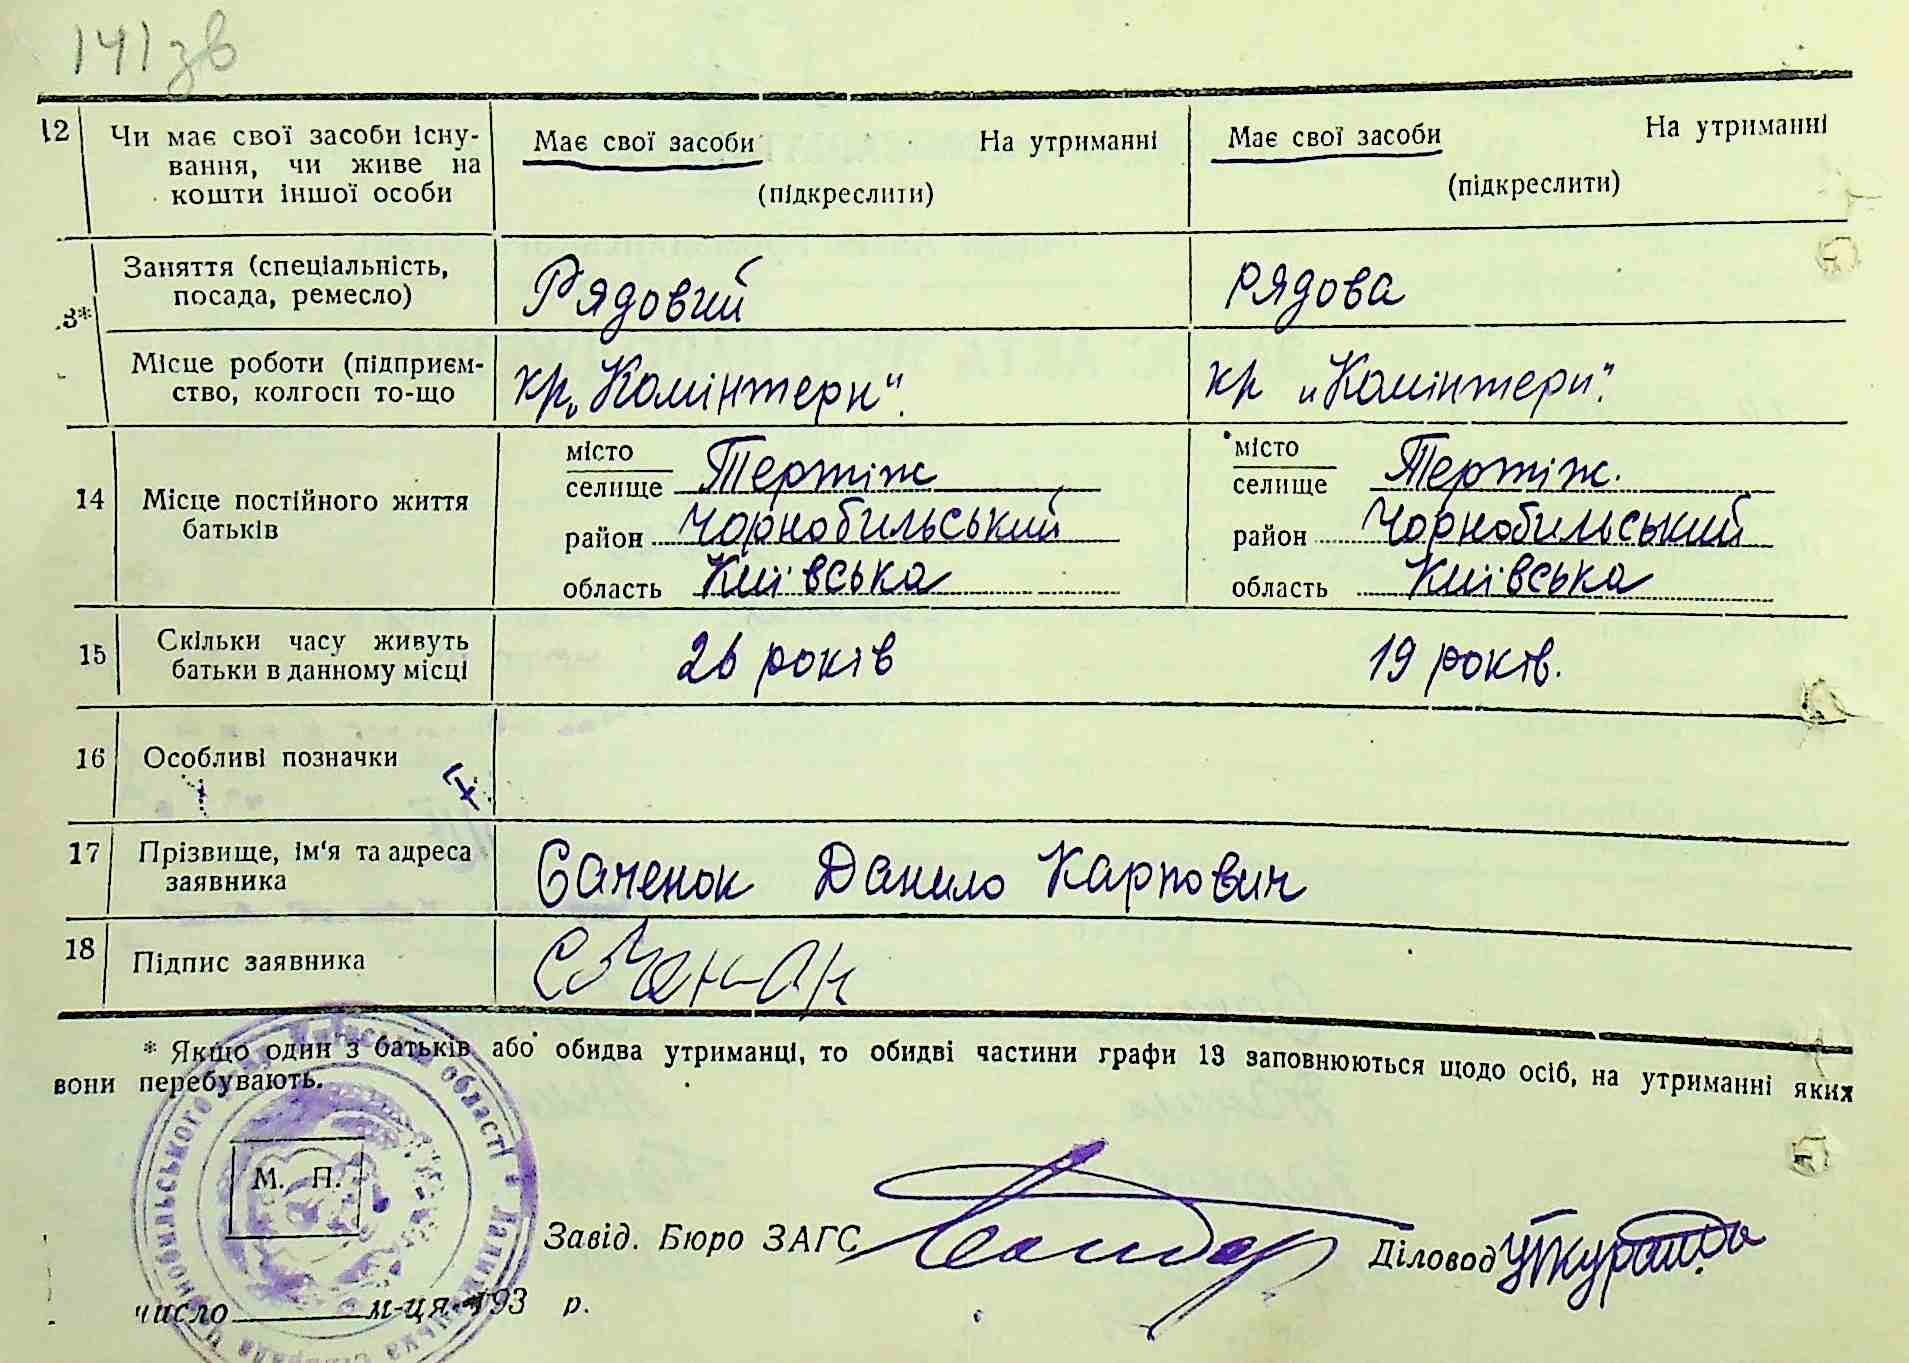 141зв
12
Чи має свої засоби існу-
вання, чи живе на
кошти іншої особи
Має свої засоби На утриманні
(підкреслити)
Має свої засоби На утриманні
(підкреслити)
3*
Заняття (спеціальність,
посада, ремесло)
Рядовий
рядова
Місце роботи (підприєм-
ство, колгосп то-що
кр. „Комінтерн“.
кр „Комінтерн“.
14
Місце постійного життя
батьків
місто
селище Тертіж
район Чорнобильський
область Київська
місто
селище Тертіж.
район Чорнобильський
область Київська
15
Скільки часу живуть
батьки в данному місці
26 років
19 років.
16
Особливі позначки
17
Прізвище, ім'я та адреса
заявника
Саченок Данило Карпович
18
Підпис заявника
* Якщо один з батьків або обидва утриманці, то обидві частини графи 13 заповнюються щодо осіб, на утриманні яких
вони перебувають.
Чорнобильського р-ну Київської області
М. П.
Завід. Бюро ЗАГС
Діловод
число м-ця 193 р.